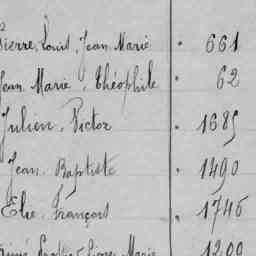 Pierre, Louis, Jean Marie . 661
Jean Marie, Théophile . 62
Julien, Victor . 1685
Jean Baptiste . 1490
Elie, François . 1746
Marie 1200